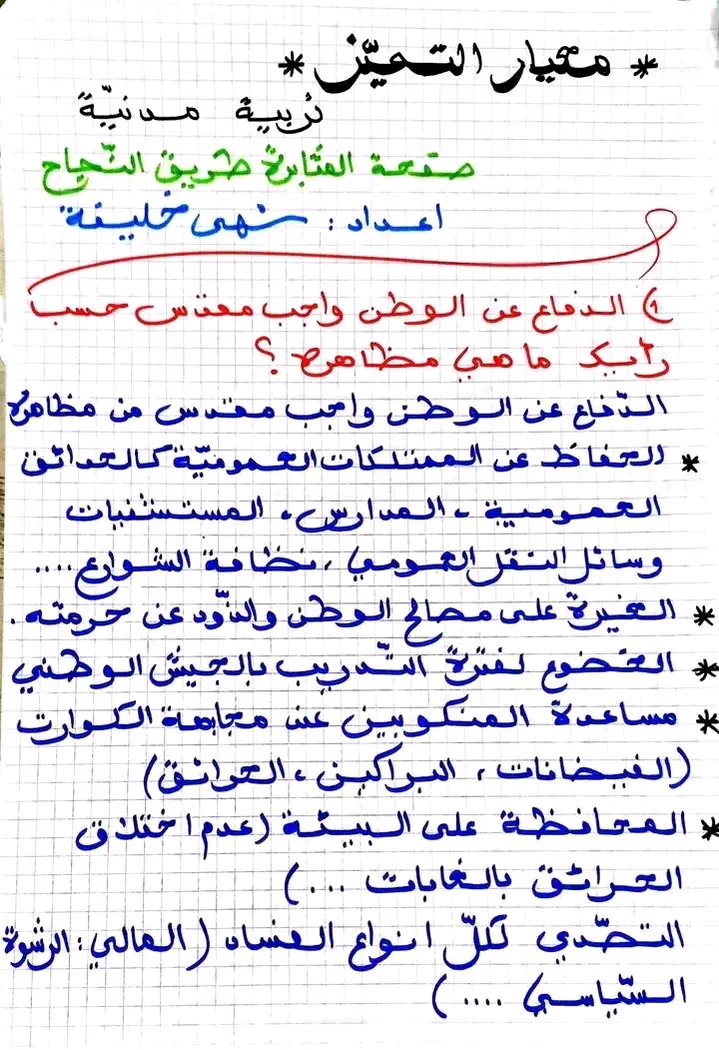 * معيار التميّز *
تربية مدنيّة
صفحة المثابرة طريق النّجاح
اعداد : سهى خليفة
1) الدفاع عن الوطن واجب مقدس حسب
رأيك ما هي مظاهره ؟
الدّفاع عن الوطن واجب مقدس من مظاهره
* الحفاظ عن الممتلكات العموميّة كالحدائق
العمومية ، المدارس ، المستشفيات
وسائل النقل العمومي ، نظافة الشوارع ....
* الغيرة على مصالح الوطن والذّود عن حرمته .
* الخضوع لفترة التّدريب بالجيش الوطني
* مساعدة المنكوبين عند مجابهة الكوارث
(الفيضانات ، البراكين ، الحرائق)
* المحافظة على البيئة (عدم اختلاق
الحرائق بالغابات ...)
التصّدي لكلّ انواع الفساد ( المالي : الرشوة
السّياسي .... )